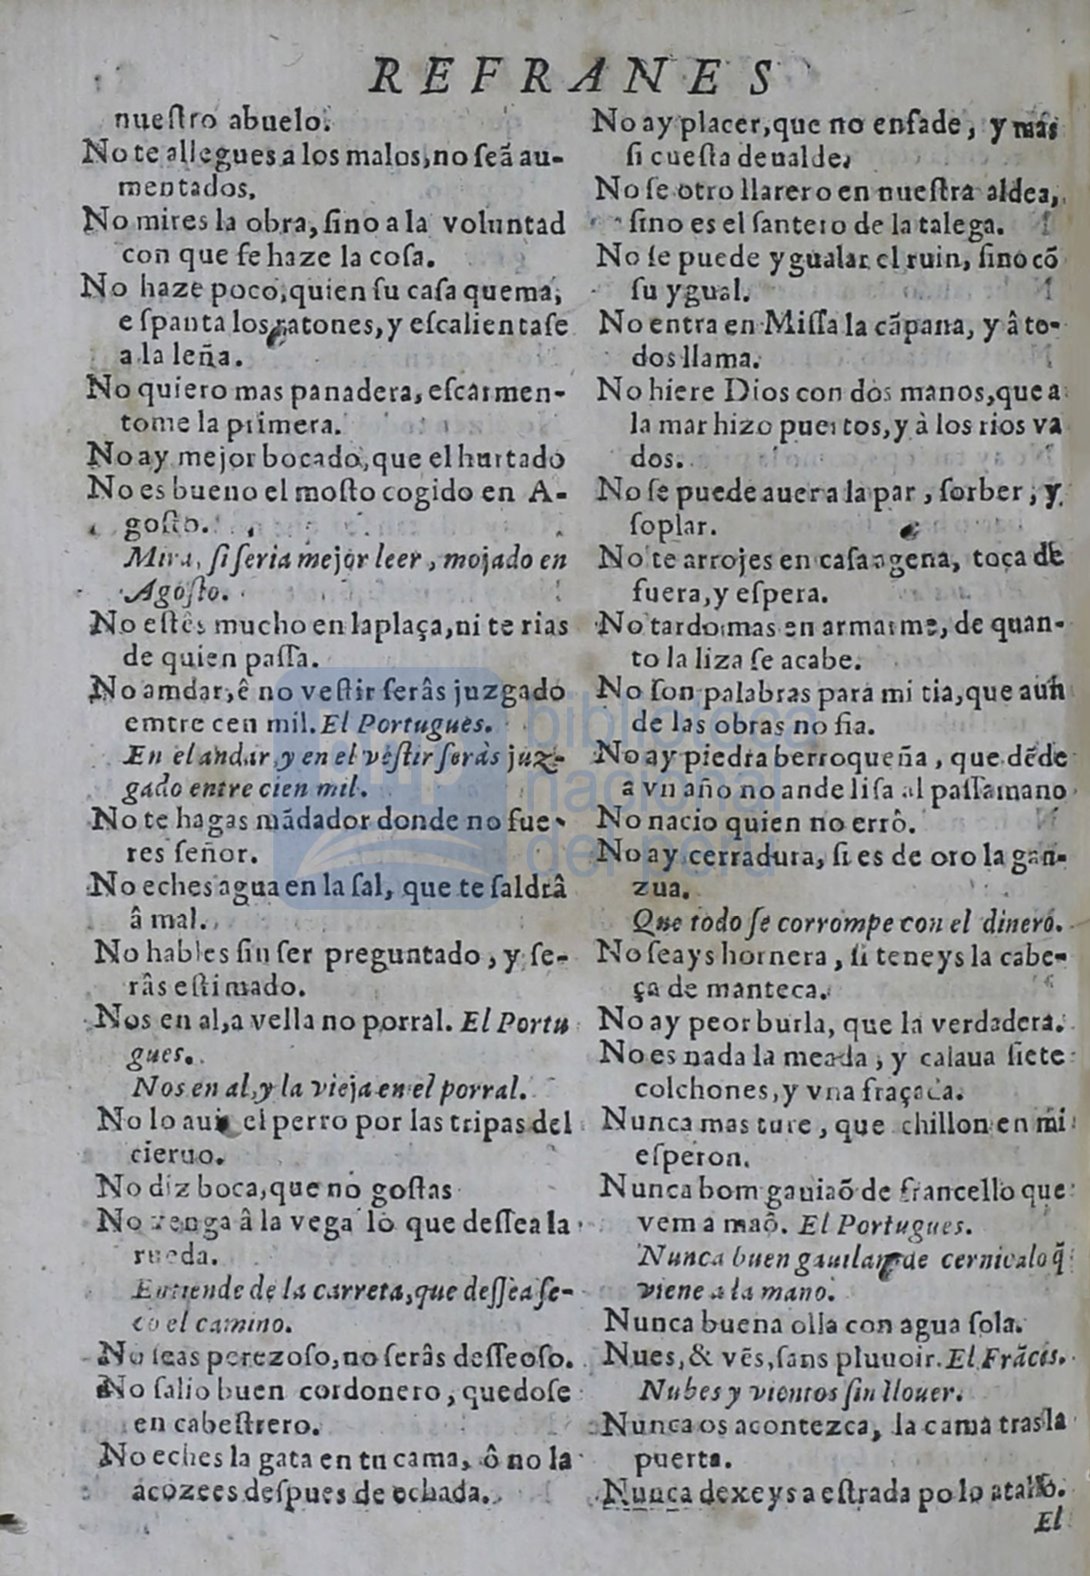 REFRANES
nueſtro abuelo.
No te allegues a los malos, no ſeã au-
mentados.
No mires la obra, ſino a la voluntad
con que ſe haze la coſa.
No haze poco, quien ſu caſa quema,
eſpanta los ratones, y eſcalientaſe
a la leña.
No quiero mas panadera, eſcarmen-
tome la primera.
No ay mejor bocado, que el hurtado
No es bueno el moſto cogido en A-
goſto.
Mira, ſi ſeria mejor leer, mojado en
Agoſto.
No eſtês mucho en la plaça, ni te rias
de quien paſſa.
No amdar, ê no veſtir ſerâs juzgado
emtre cen mil. El Portugues.
En el andar y en el veſtir ſeràs juz-
gado entre cien mil.
No te hagas mãdador donde no fue-
res ſeñor.
No eches agua en la ſal, que te ſaldrâ
â mal.
No hables ſin ſer preguntado, y ſe-
râs eſtimado.
Nos en al, a vella no porral. El Portu
gues.
Nos en al, y la vieja en el porral.
No lo auie el perro por las tripas del
cieruo.
No diz boca, que no goſtas
No venga â la vega lo que deſſea la
rueda.
Entiende de la carreta, que deſſea ſe-
co el camino.
No ſeas perezoſo, no ſerâs deſſeoſo.
No ſalio buen cordonero, quedoſe
en cabeſtrero.
No eches la gata en tu cama, ô no la
acozees deſpues de echada.
No ay placer, que no enfade, y mas
ſi cueſta deualde.
No ſe otro llarero en nueſtra aldea,
ſino es el ſantero de la talega.
No ſe puede ygualar el ruin, ſino cõ
ſu ygual.
No entra en Miſſa la cãpana, y â to-
dos llama.
No hiere Dios con dos manos, que a
la mar hizo puertos, y à los rios va
dos.
No ſe puede auer a la par, ſorber, y
ſoplar.
No te arrojes en caſa agena, toca de
fuera, y eſpera.
No tardo mas en armarme, de quan-
to la liza ſe acabe.
No ſon palabras para mi tia, que aun
de las obras no fia.
No ay piedra berroqueña, que dẽde
a vn año no ande liſa al paſſamano
No nacio quien no errô.
No ay cerradura, ſi es de oro la gan-
zua.
Que todo ſe corrompe con el dinero.
No ſeays hornera, ſi teneys la cabe-
ça de manteca.
No ay peor burla, que la verdadera.
No es nada la meada, y calaua ſiete
colchones, y vna fraçada.
Nunca mas ture, que chillon en mi
eſperon.
Nunca bom gauiaõ de francello que
vem a maõ. El Portugues.
Nunca buen gauilan de cernicalo q̃
viene a la mano.
Nunca buena olla con agua ſola.
Nues, & vẽs, ſans pluuoir. El Frãces.
Nubes y vientos ſin llouer.
Nunca os acontezca, la cama tras la
puerta.
Nunca dexeys a eſtrada po lo atallo.
El
biblioteca
nacional
del perú